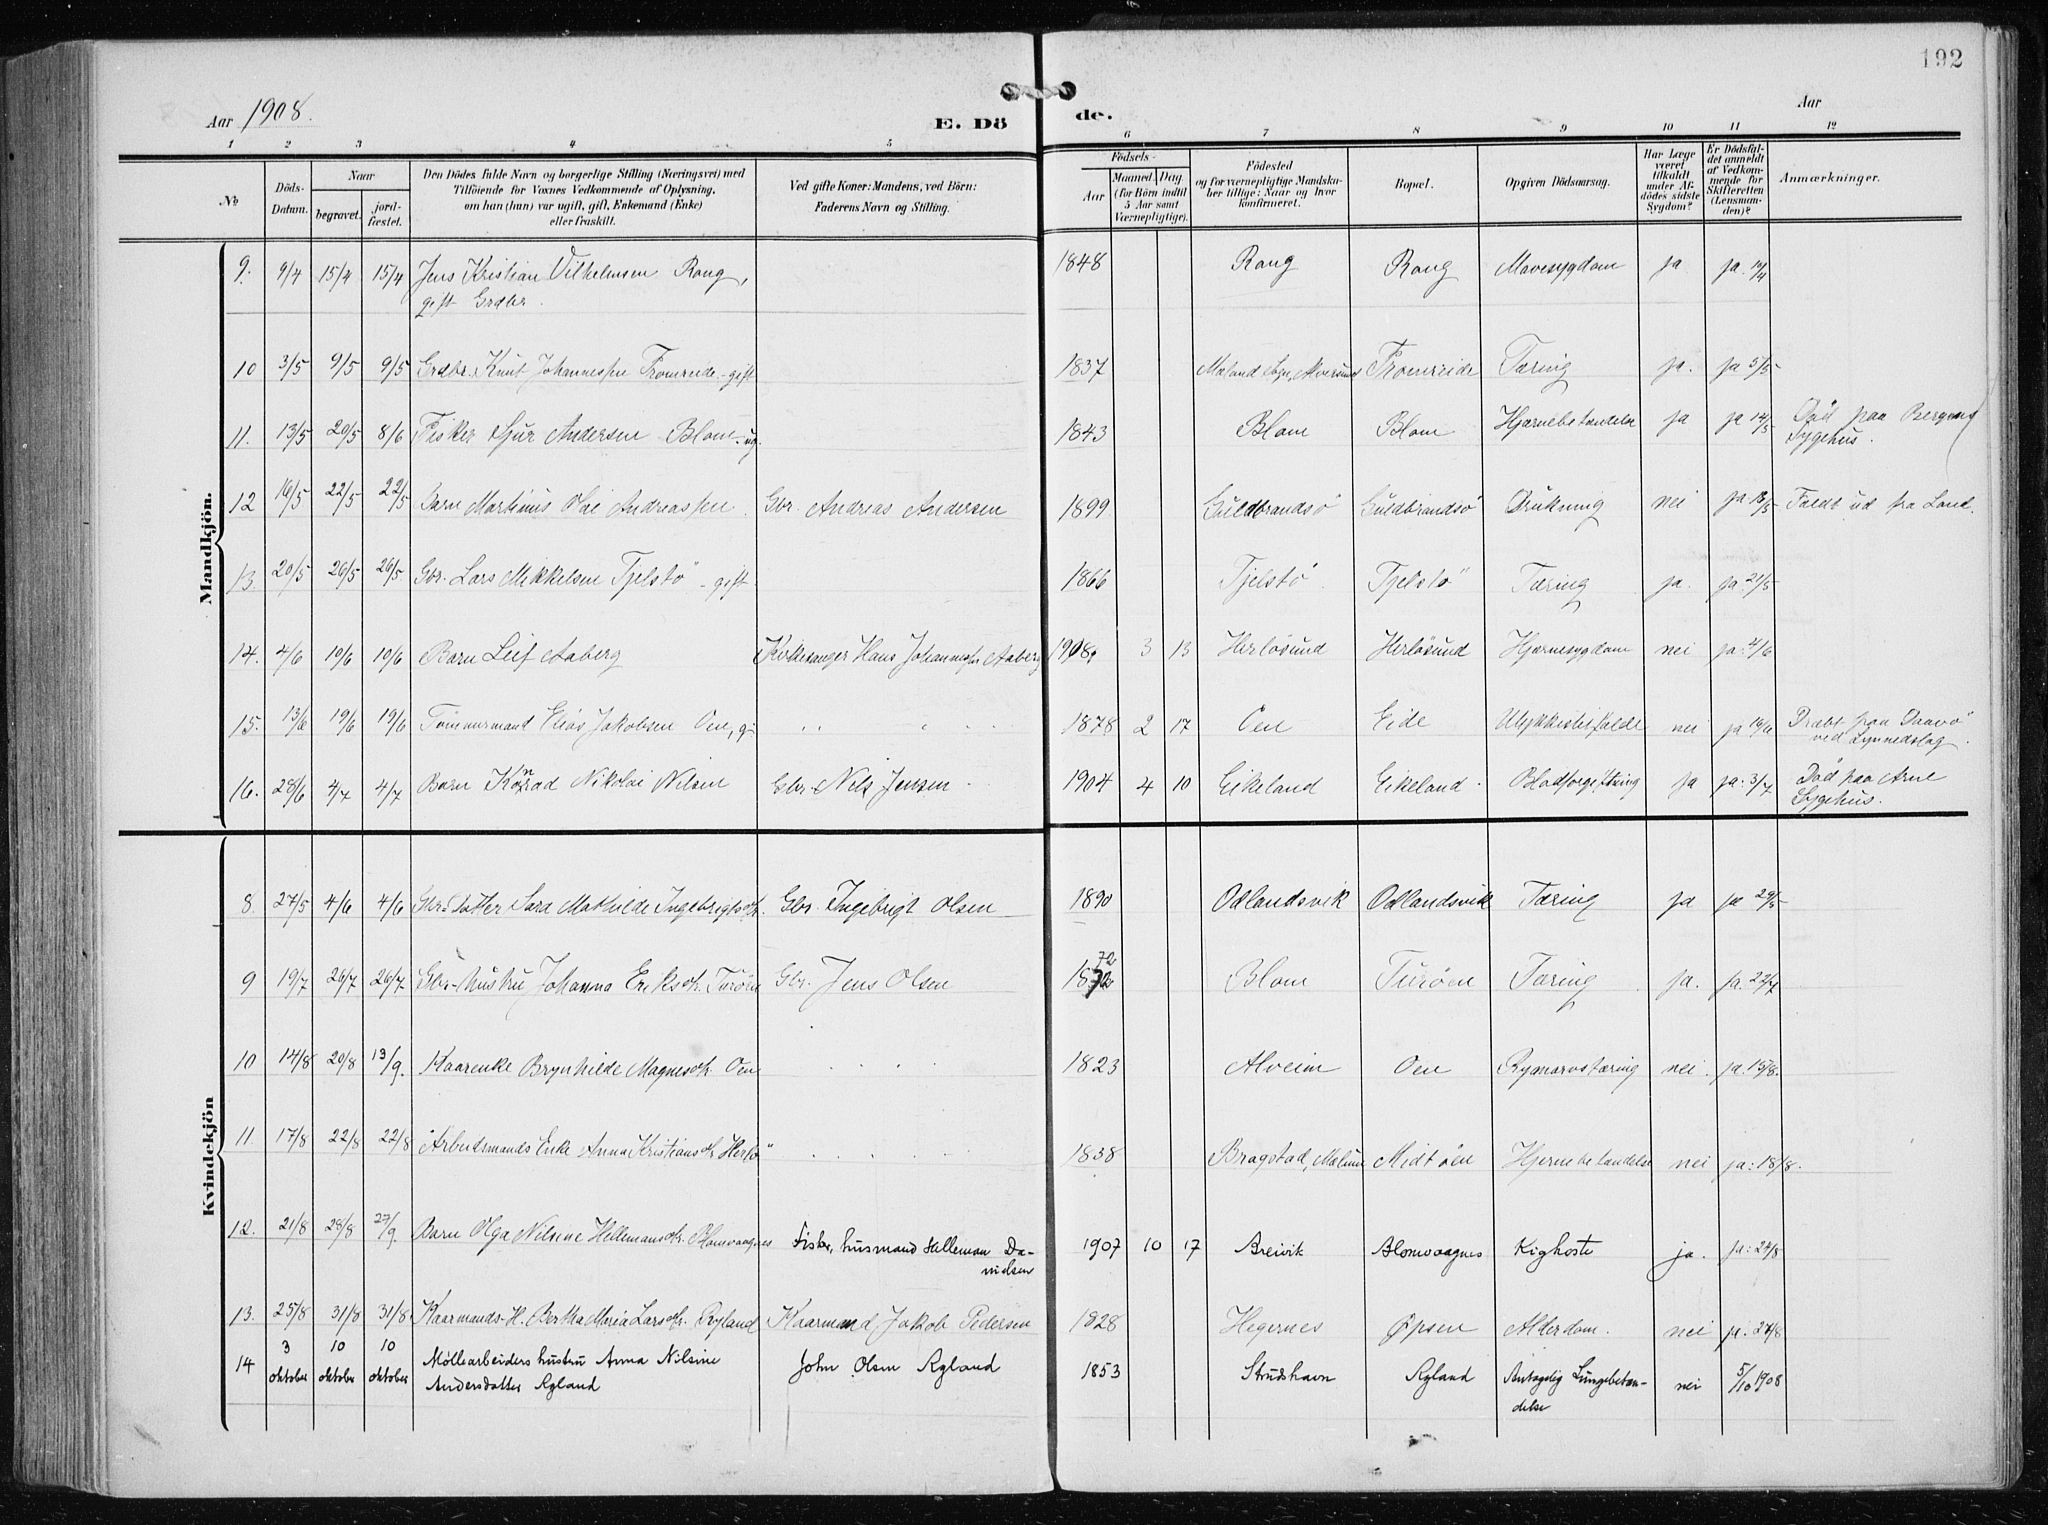 192
Aar 1908.
E. Dö de.
Aar
1 2 3 4 5 6 7 8 9 10 11 12
No
Döds-Datum.
Naar
begravet.
jord-fæstet.
Den Dödes fulde Navn og borgerlige Stilling (Næringsvei) med
Tilföiende for Voxnes Vedkommende af Oplysning,
om han (hun) var ugift, gift, Enkemand (Enke)
eller fraskilt.
Ved gifte Koner: Mandens, ved Börn:
Faderens Navn og Stilling.
Födsels-
Aar
Maaned. Dag.
(for Börn indtil
5 Aar samt
Værnepligtige).
Födested
og for værnepligtige Mandska-
ber tillige: Naar og hvor
konfirmeret.
Bopæl.
Opgiven Dödsaarsag.
Har Læge
været
tilkaldt
under Af-
dödes sidste
Sygdom?
Er Dödsfal-
det anmeldt
af Vedkom-
mende for
Skifteretten
(Lensman-
den)?
Anmærkninger.
Mandkjön.
9. 9/4 15/4 15/4 Jens Kristian Vilhelmsen Rong, 1848 Rong Rong Mavesygdom ja ja 10/4
gift Grdbr.
10 3/5 9/5 9/5 Grdbr. Knut Johannessen Fromreide - gift 1837 Fromreide Tæring ja. ja 5/5
11. 13/5 20/5 8/6 Fisker Sjur Andersen Blom - ug. 1843 Blom Blom Hjernebetændelse ja ja 14/5 Död paa Bergens
Sygehus.
12 16/5 22/5 22/5 Barn Martinus Olai Andreassen Gbr. Andreas Andersen 1899 Guldbrandsö Guldbrandsö Drukning nei ja 18/5 Faldt ud fra Land.
13. 20/5 26/5 26/5 Gbr. Lars Mikkelsen Tjelstö - gift 1866 Tjelstö Tjelstö Tæring ja. ja: 21/5
14. 4/6 10/6 10/6 Barn Leif Aaberg Kirkesanger Hans Johannessen Aaberg 1908 3 13 Herlösund Herlösund Hjernesygdom nei ja: 4/6
15. 13/6 19/6 19/6 Tömmermand Elias Jakobsen Oen, g. 1878 2 17 Oen Eide Ulykkestilfælde nei ja 16/6 Dræbt paa
ved Lynnedslag.
16. 28/6 4/7 4/7 Barn Konrad Nikolai Nilsen Gbr. Nels Jensen 1904 4 10 Eikeland Eikeland Blodforgiftning ja ja: 3/7 Död paa Arne
Sygehus.
Kvindekjön
8. 27/5 4/6 4/6 Gbr. Datter Sara Mathilde Ingebrigtsdtr. Gbr. Ingebrigt Olsen 1890 Odlandsvik Odlandsvik Tæring ja ja 29/5
9 19/7 26/7 26/7 Gbr. hustru Johanna Eriksdtr. Turöen Gbr. Jens Olsen 1872 Blom Turöen Tæring ja. ja. 22/7
10 14/8 20/8 13/9. Kaarenke Brynhilde Magnesdtr. Oen 1823 Alveim Oen Rygmarvstæring nei ja. 15/8.
11. 17/8 22/8 22/8 Arbeidsmands Enke Anna Kristiansdtr. Herlö 1838 Bragstad, Midtöen Hjernebetændelse nei ja: 18/8.
12. 21/8 28/8 27/9 Barn Olga Nilsine Hellemansdtr. Blomvaagnes Fisker, husmand Helleman Da- 1907 10 17 Breivik Blomvaagnes Kighoste ja. ja: 24/8
nielsen
13. 25/8 31/8 31/8 Kaarmands-H. Bertha Maria Larsdtr. Ryland Kaarmand Jakob Pedersen 1828 Hegernes Øpsen Alderdom. nei ja. 27/8
14 3 oktober 10 oktober 10 oktober Möllearbeiders hustru Anna Nilsine John Olsen Ryland 1853 Strudshavn Ryland Antagelig Lungebetæn- nei 5/10 1908
Andersdatter Ryland delse